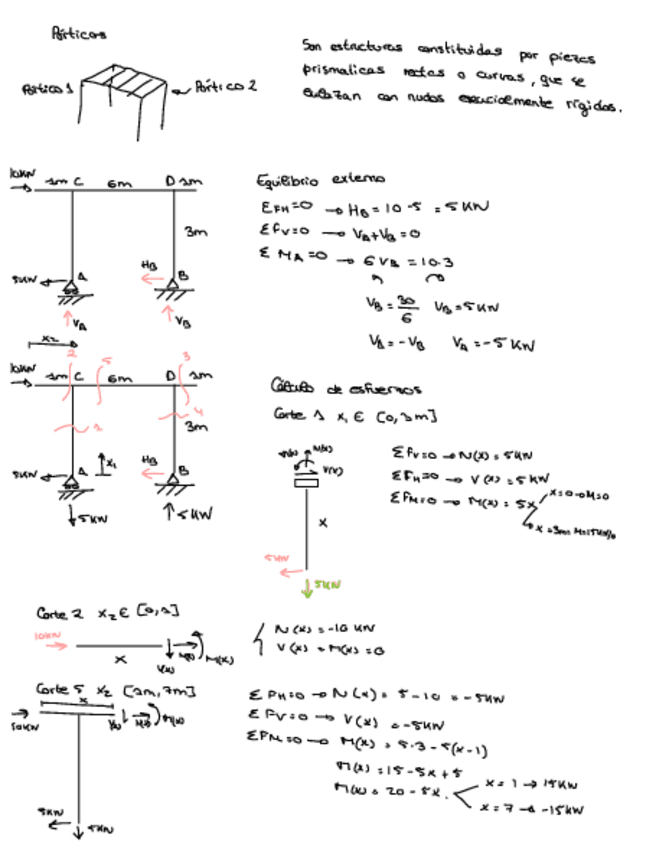 Pórticos
Son estructuras constituidas por piezas
prismaticas rectas o curvas, que se
enlazan con nudos esencialmente rígidos.
Pórtico 1
Pórtico 2
10KN
1m C 6m D 1m
3m
5KW A
HB B
VA
VB
Equilibrio externo
ΣFH=0 → HB = 10-5 = 5KN
ΣFV=0 → VA+VB=0
ΣMA=0 → 6VB = 10·3
VB = 30/6 VB = 5KN
VA = -VB VA = -5KN
x2
2 5 3
10KN
1m C 6m D 1m
1 4
3m
5KW A x1
HB B
5KW
5KW
Cálculo de esfuerzos
Corte 1 x1 ∈ [0,3m]
M(x) N(x)
V(x)
x
5KN
5KN
ΣFV=0 → N(x) = 5KN
ΣFH=0 → V(x) = 5KN
ΣFM=0 → M(x) = 5x
x=0→M=0
x=3m M=15KN/m
Corte 2 x2 ∈ [0,1]
10KN
x
V(x) N(x) M(x)
N(x) = -10 KN
V(x) = M(x) = 0
Corte 5 x2 [1m,7m]
x
10KN
V(x) N(x) M(x)
5KN
5KN
ΣFH=0 → N(x) = 5-10 = -5KN
ΣFV=0 → V(x) = -5KN
ΣFM=0 → M(x) = 5·3-5(x-1)
M(x) = 15-5x+5
M(x) = 20-5x
x=1 → 15KW
x=7 → -15KW